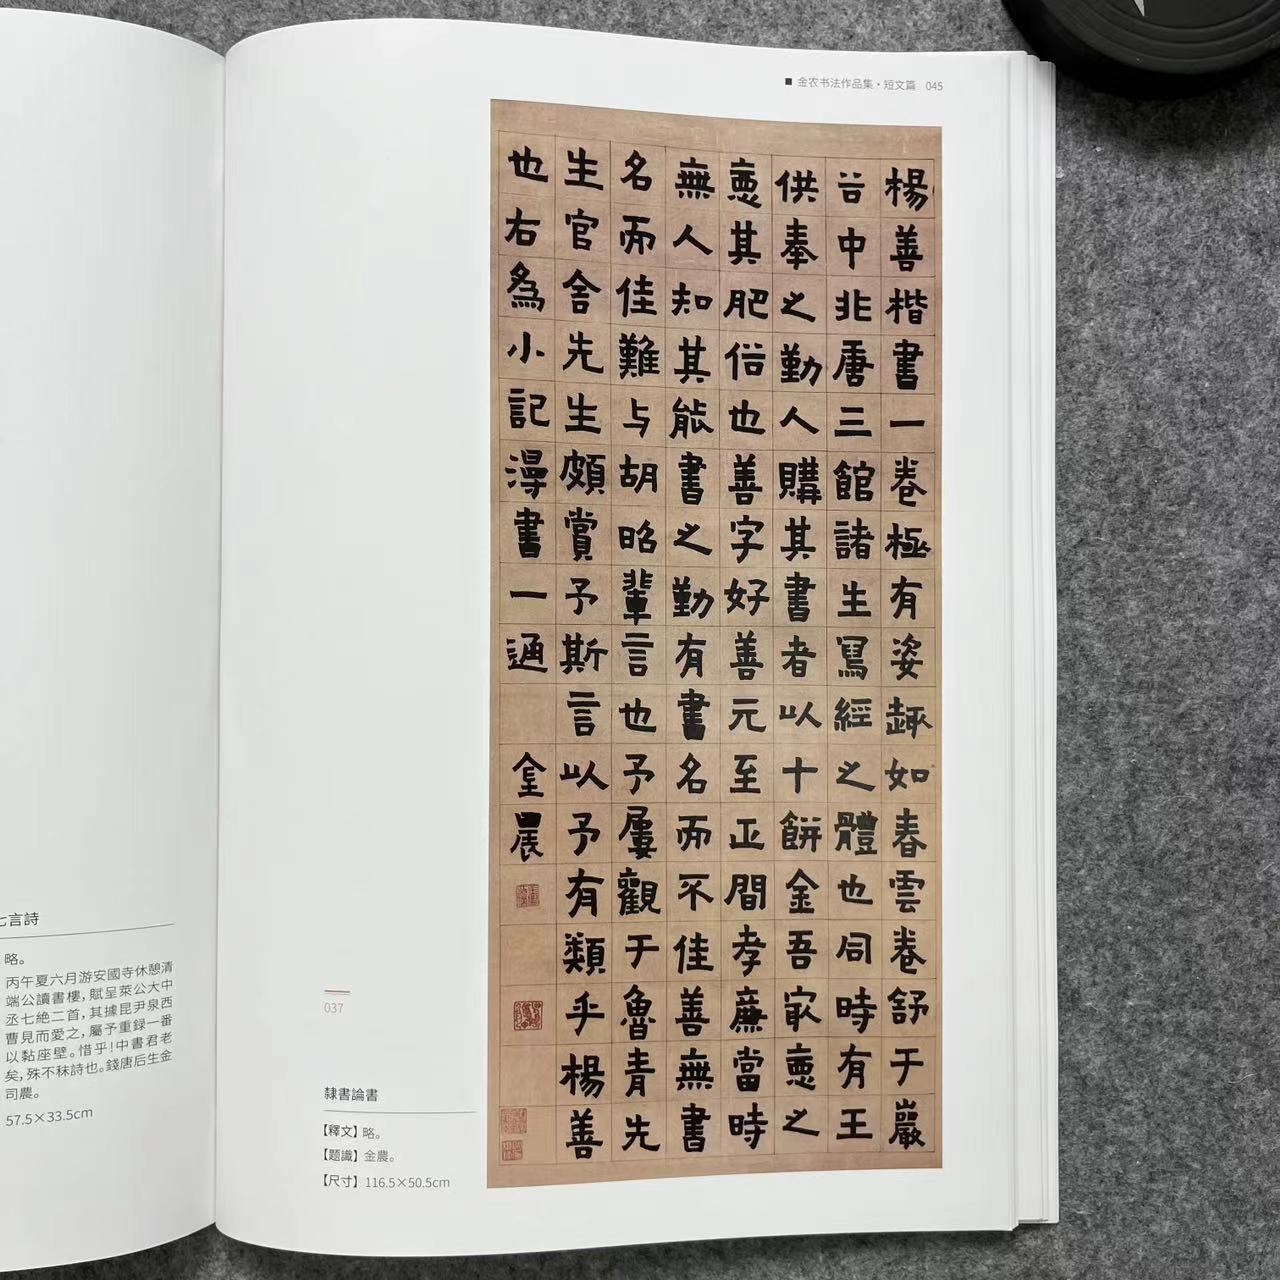 金农书法作品集·短文篇 045
楊善楷書一卷極有姿趣如春雲卷舒于巖
谷中非唐三館諸生寫經之體也同時有王
供奉之勤人購其書者以十餅金吾家惪之
惪其肥俗也善字好善元至正間孝廉當時
無人知其能書之勤有書名而不佳善無書
名而佳難与胡昭輩言也予屢觀于魯青先
生官舍先生頗賞予斯言以予有類乎楊善
也右為小記漫書一通 金農
037
隸書論書
【釋文】略。
【題識】金農。
【尺寸】116.5×50.5cm
七言詩
略。
丙午夏六月游安國寺休憩清
端公讀書樓，賦呈萊公大中
丞七絶二首，其據昆尹泉西
曹見而愛之，屬予重録一番
以黏座壁。惜乎！中書君老
矣，殊不秣詩也。錢唐后生金
司農。
57.5×33.5cm